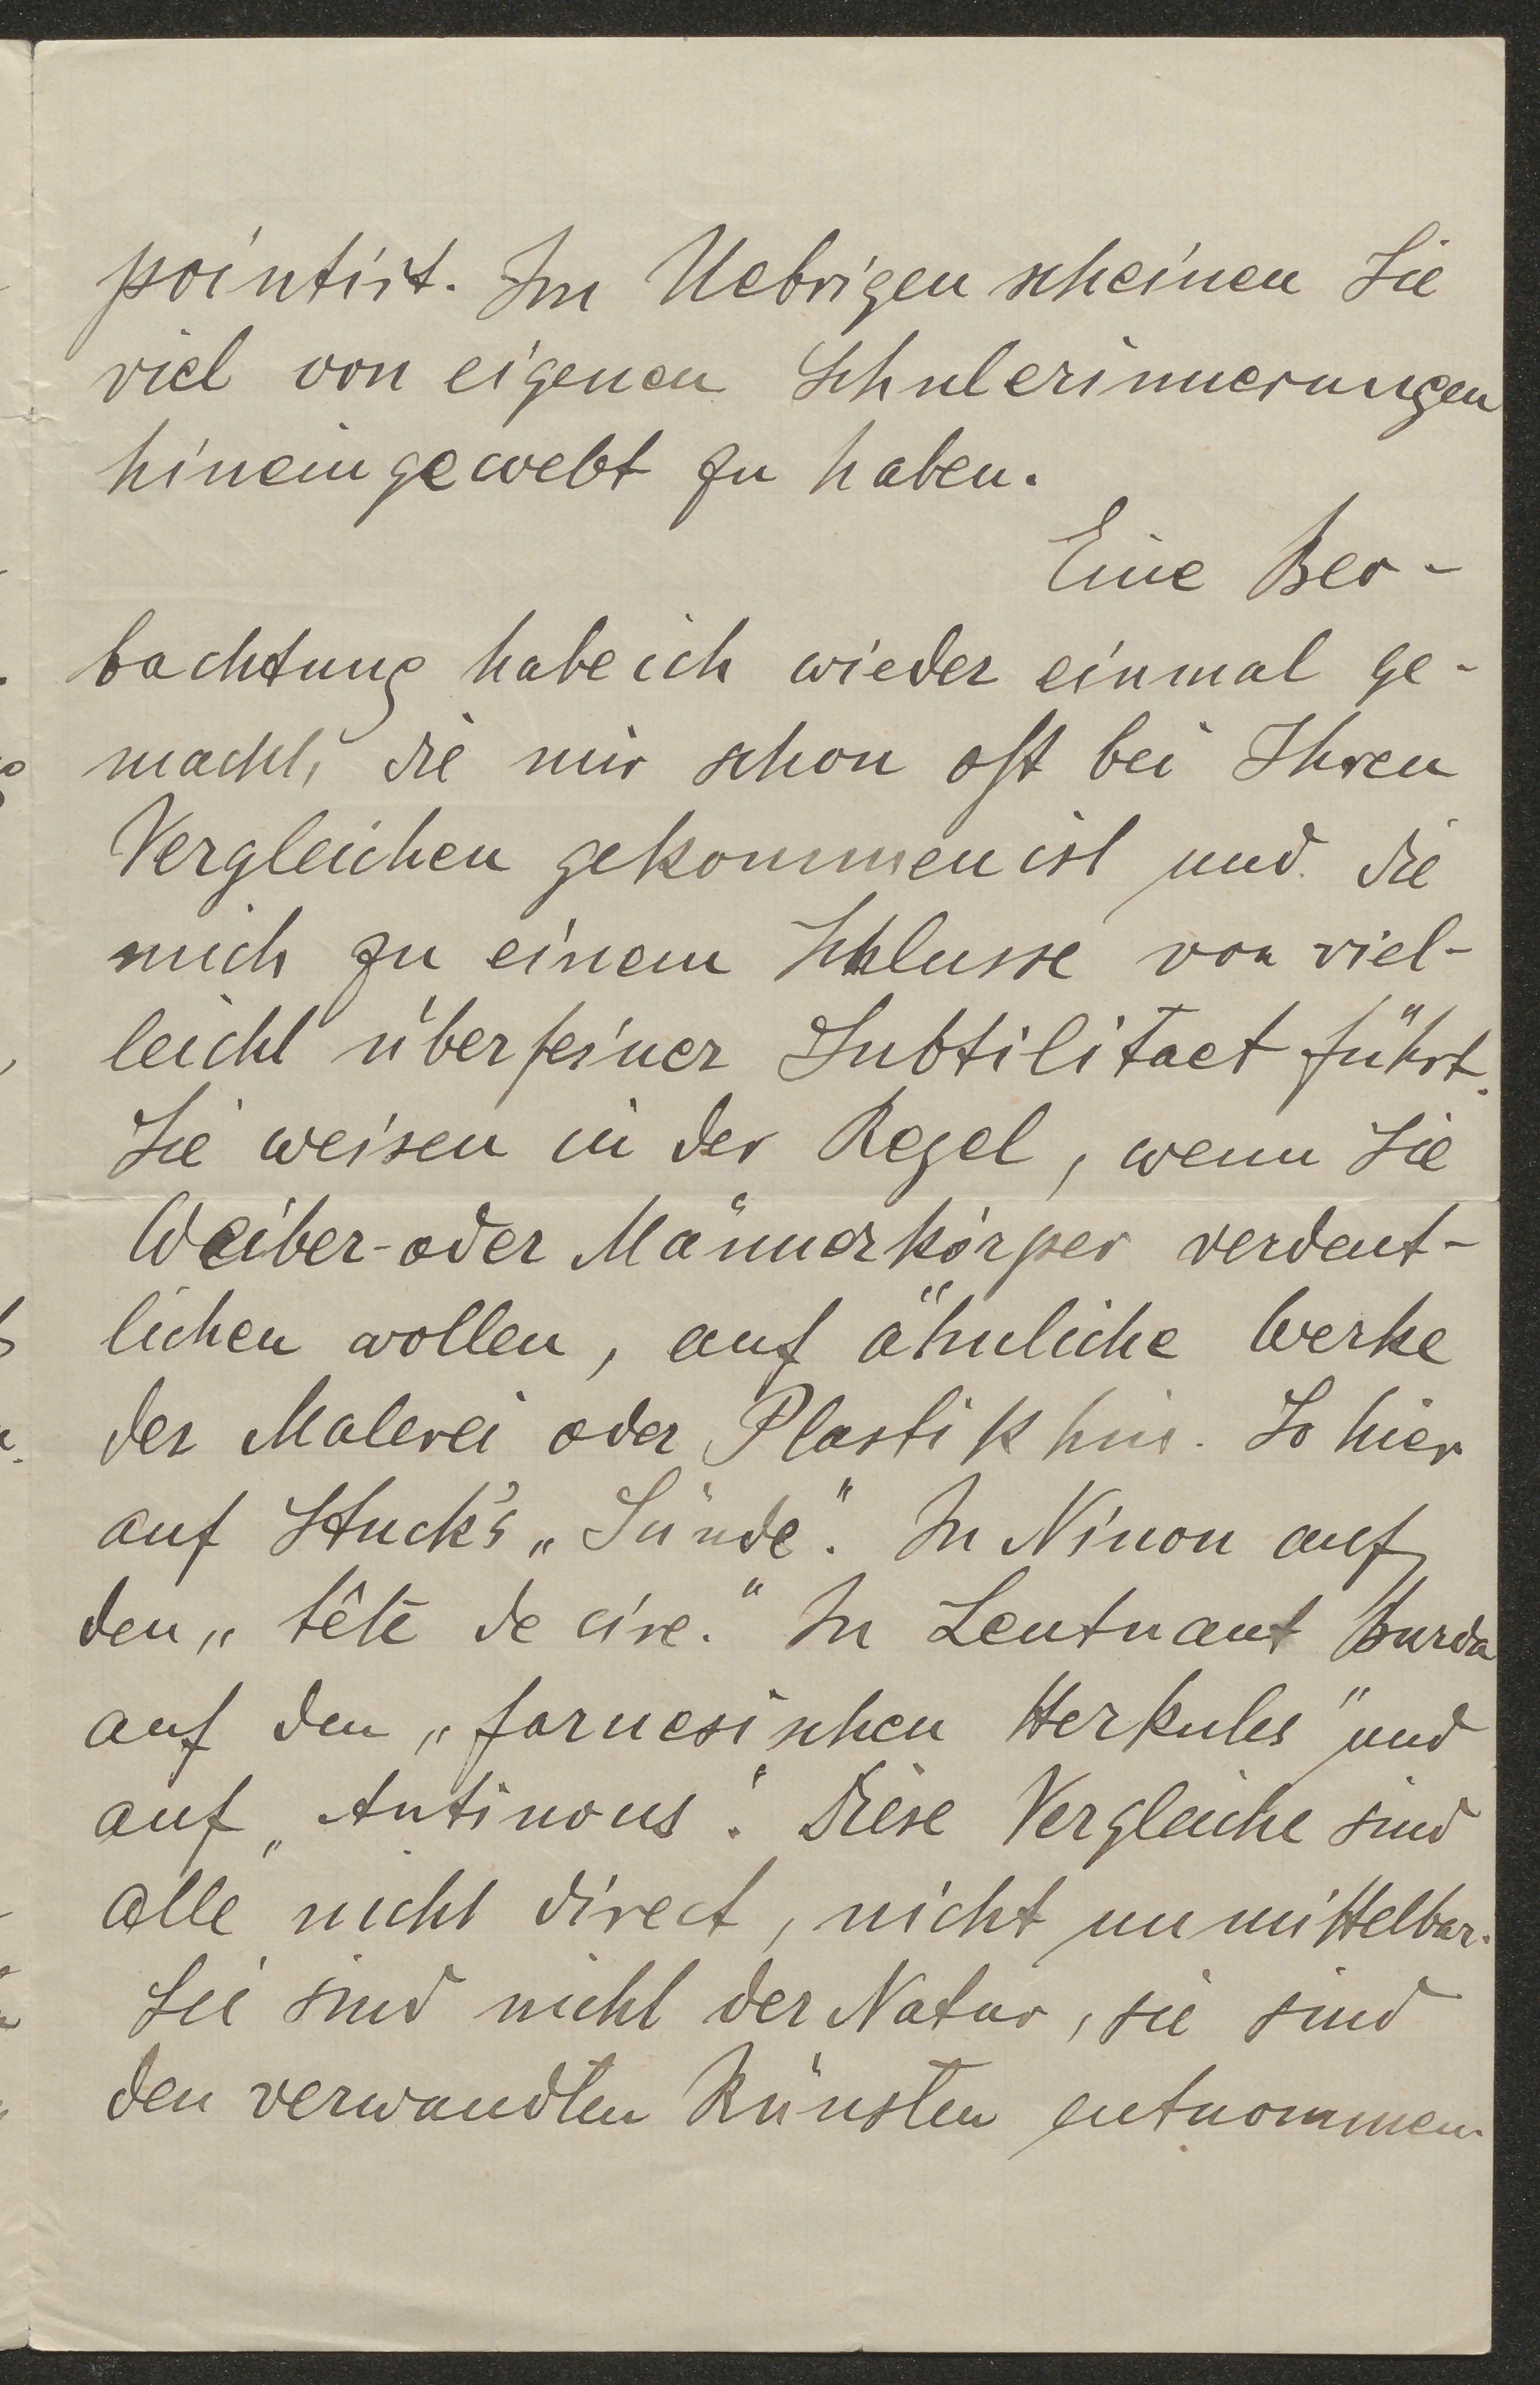 pointirt. Im Uebrigen scheinen Sie
viel von eigenen Schulerinnerungen
hineingewebt zu haben.
Eine Beo-
bachtung habe ich wieder einmal ge-
macht, die mir schon oft bei Ihren
Vergleichen gekommen ist und die
mich zu einem Schlusse von viel-
leicht überfeiner Subtilitaet führt.
Sie weisen in der Regel, wenn Sie
Weiber- oder Männerkörper verdeut-
lichen wollen, auf ähnliche Werke
der Malerei oder Plastik hin. So hier
auf Stuck's „Sünde". In Ninon auf
den „tête de cire." In Leutnant Burda
auf den „farnesischen Herkules" und
auf „Antinous". Diese Vergleiche sind
alle nicht direct, nicht unmittelbar.
Sie sind nicht der Natur, sie sind
den verwandten Künsten entnommen.